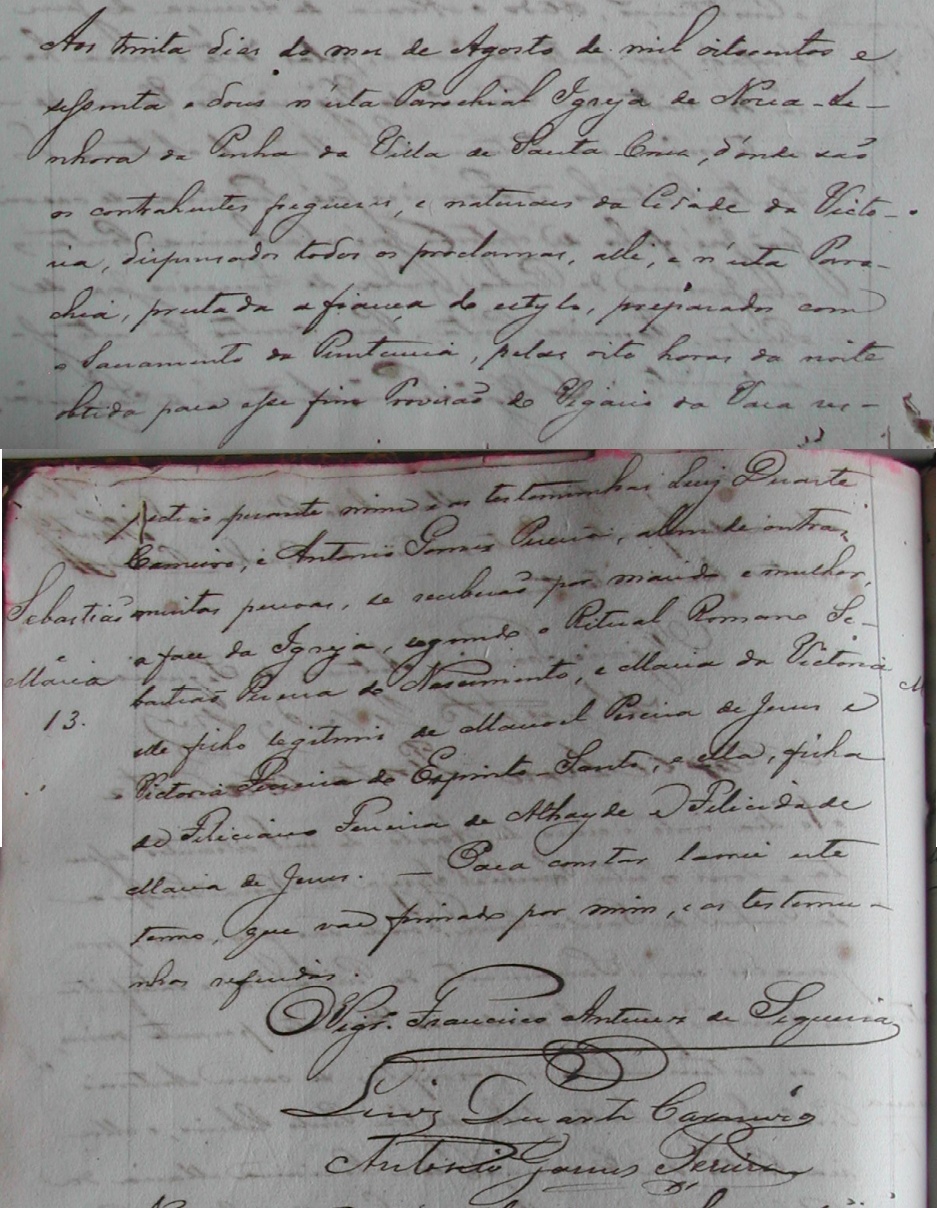 Aos trinta dias do mes de Agosto de mil oitocentos e
sessenta e dous n'esta Parochial Igreja de Nossa Se-
nhora da Penha da Villa de Santa Cruz, d'onde são
os contrahentes freguezes, e naturaes da Cidade da Victo-
ria, dispensados todos os proclamas, alli, e n'esta Paro-
chia, prestada a fiança do estylo, preparados com
o Sacramento da Penitencia, pelas oito horas da noite
obtida para esse fim Provisão do Vigario da Vara res-
pectivo perante mim e as testemunhas Luiz Duarte
Carneiro, e Antonio Gomes Pereira, alem de outras
Sebastião
muitas pessoas, se receberão por marido e mulher,
a face da Igreja, segundo o Ritual Romano Se-
e
Maria
bastião Pereira do Nascimento, e Maria da Victoria
13.
elle filho legitimo de Manoel Pereira de Jesus e
Victoria Pereira do Espirito-Santo, e ella, filha
de Feliciano Ferreira de Athayde e Felicidade
Maria de Jesus. — Para constar lavrei este
termo, que vae firmado por mim, e as testemu-
nhas referidas.
O Vigr.º Francisco Antunes de Sequeira
Luiz Duarte Carneiro
Antonio Gomes Pereira